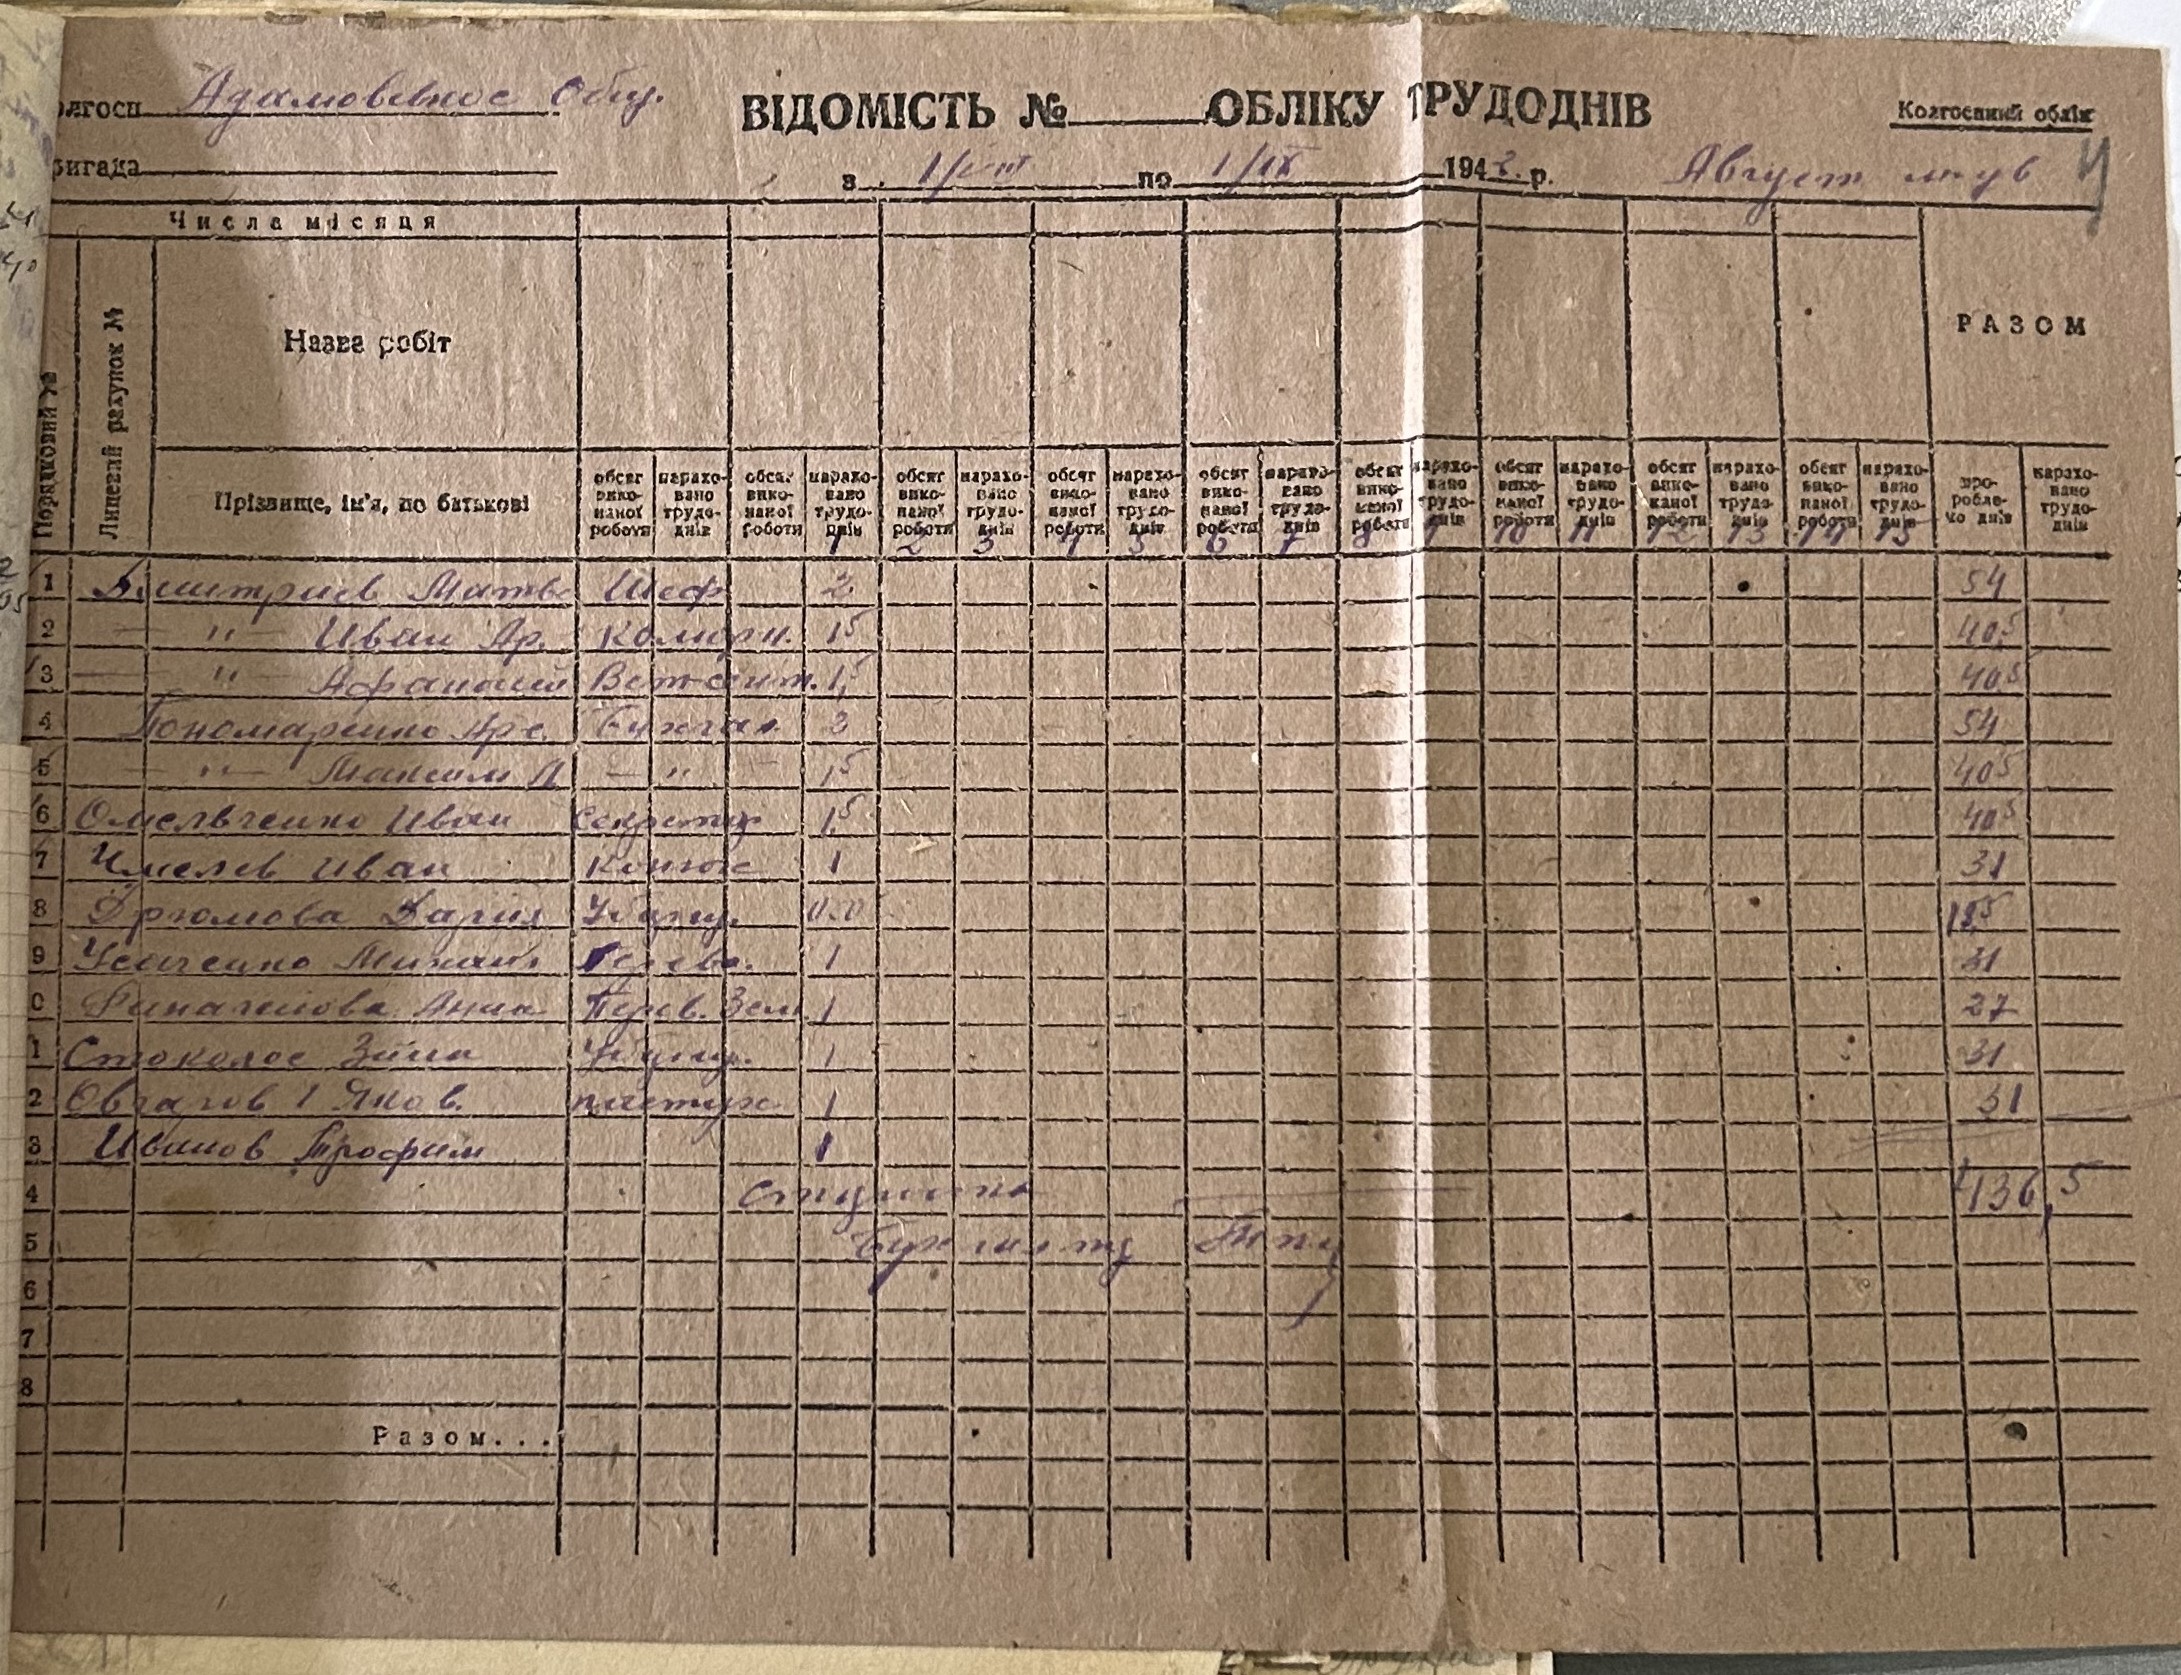 олгосп Адамовское Общ. ВІДОМІСТЬ № ОБЛІКУ ТРУДОДНІВ Колгоспний облік
ригада з 1/VIII по 1/IX 1942 р. Август м-ць 4
Числа місяця
Порядковий № Лицевий рахунок № Назва робіт РАЗОМ
Прізвище, ім'я, по батькові обсяг виконаної роботи нараховано трудоднів обсяг виконаної роботи нараховано трудоднів обсяг виконаної роботи нараховано трудоднів обсяг виконаної роботи нараховано трудоднів обсяг виконаної роботи нараховано трудоднів обсяг виконаної роботи нараховано трудоднів обсяг виконаної роботи нараховано трудоднів обсяг виконаної роботи нараховано трудоднів обсяг виконаної роботи нараховано трудоднів проробле-но днів нараховано трудоднів
1 2 3 4 5 6 7 8 9 10 11 12 13 14 15
1 Дмитриев Матве Шеф 2 54
2 — " — Иван Ар. Коморн. 1,5 40,5
3 — " — Афанасий Вет-сант. 1,5 40,5
4 Пономаренко Арс. Бухгал. 2 54
5 — " — Максим — " — 1,5 40,5
6 Омельченко Иван Секретар 1,5 40,5
7 Чмелев Иван Конюх 1 31
8 Дрюмова Дария Уборщ. 15,5
9 Усаченко Михаил 1 31
0 Анна Перев. Зем. 1 27
1 Стоколос Зина Уборщ. 1 31
2 Овчаров Яков. пастух 1 31
3 Иванов Трофим 1
4 436,5
5 Бухгалтер
6
7
8
Разом...